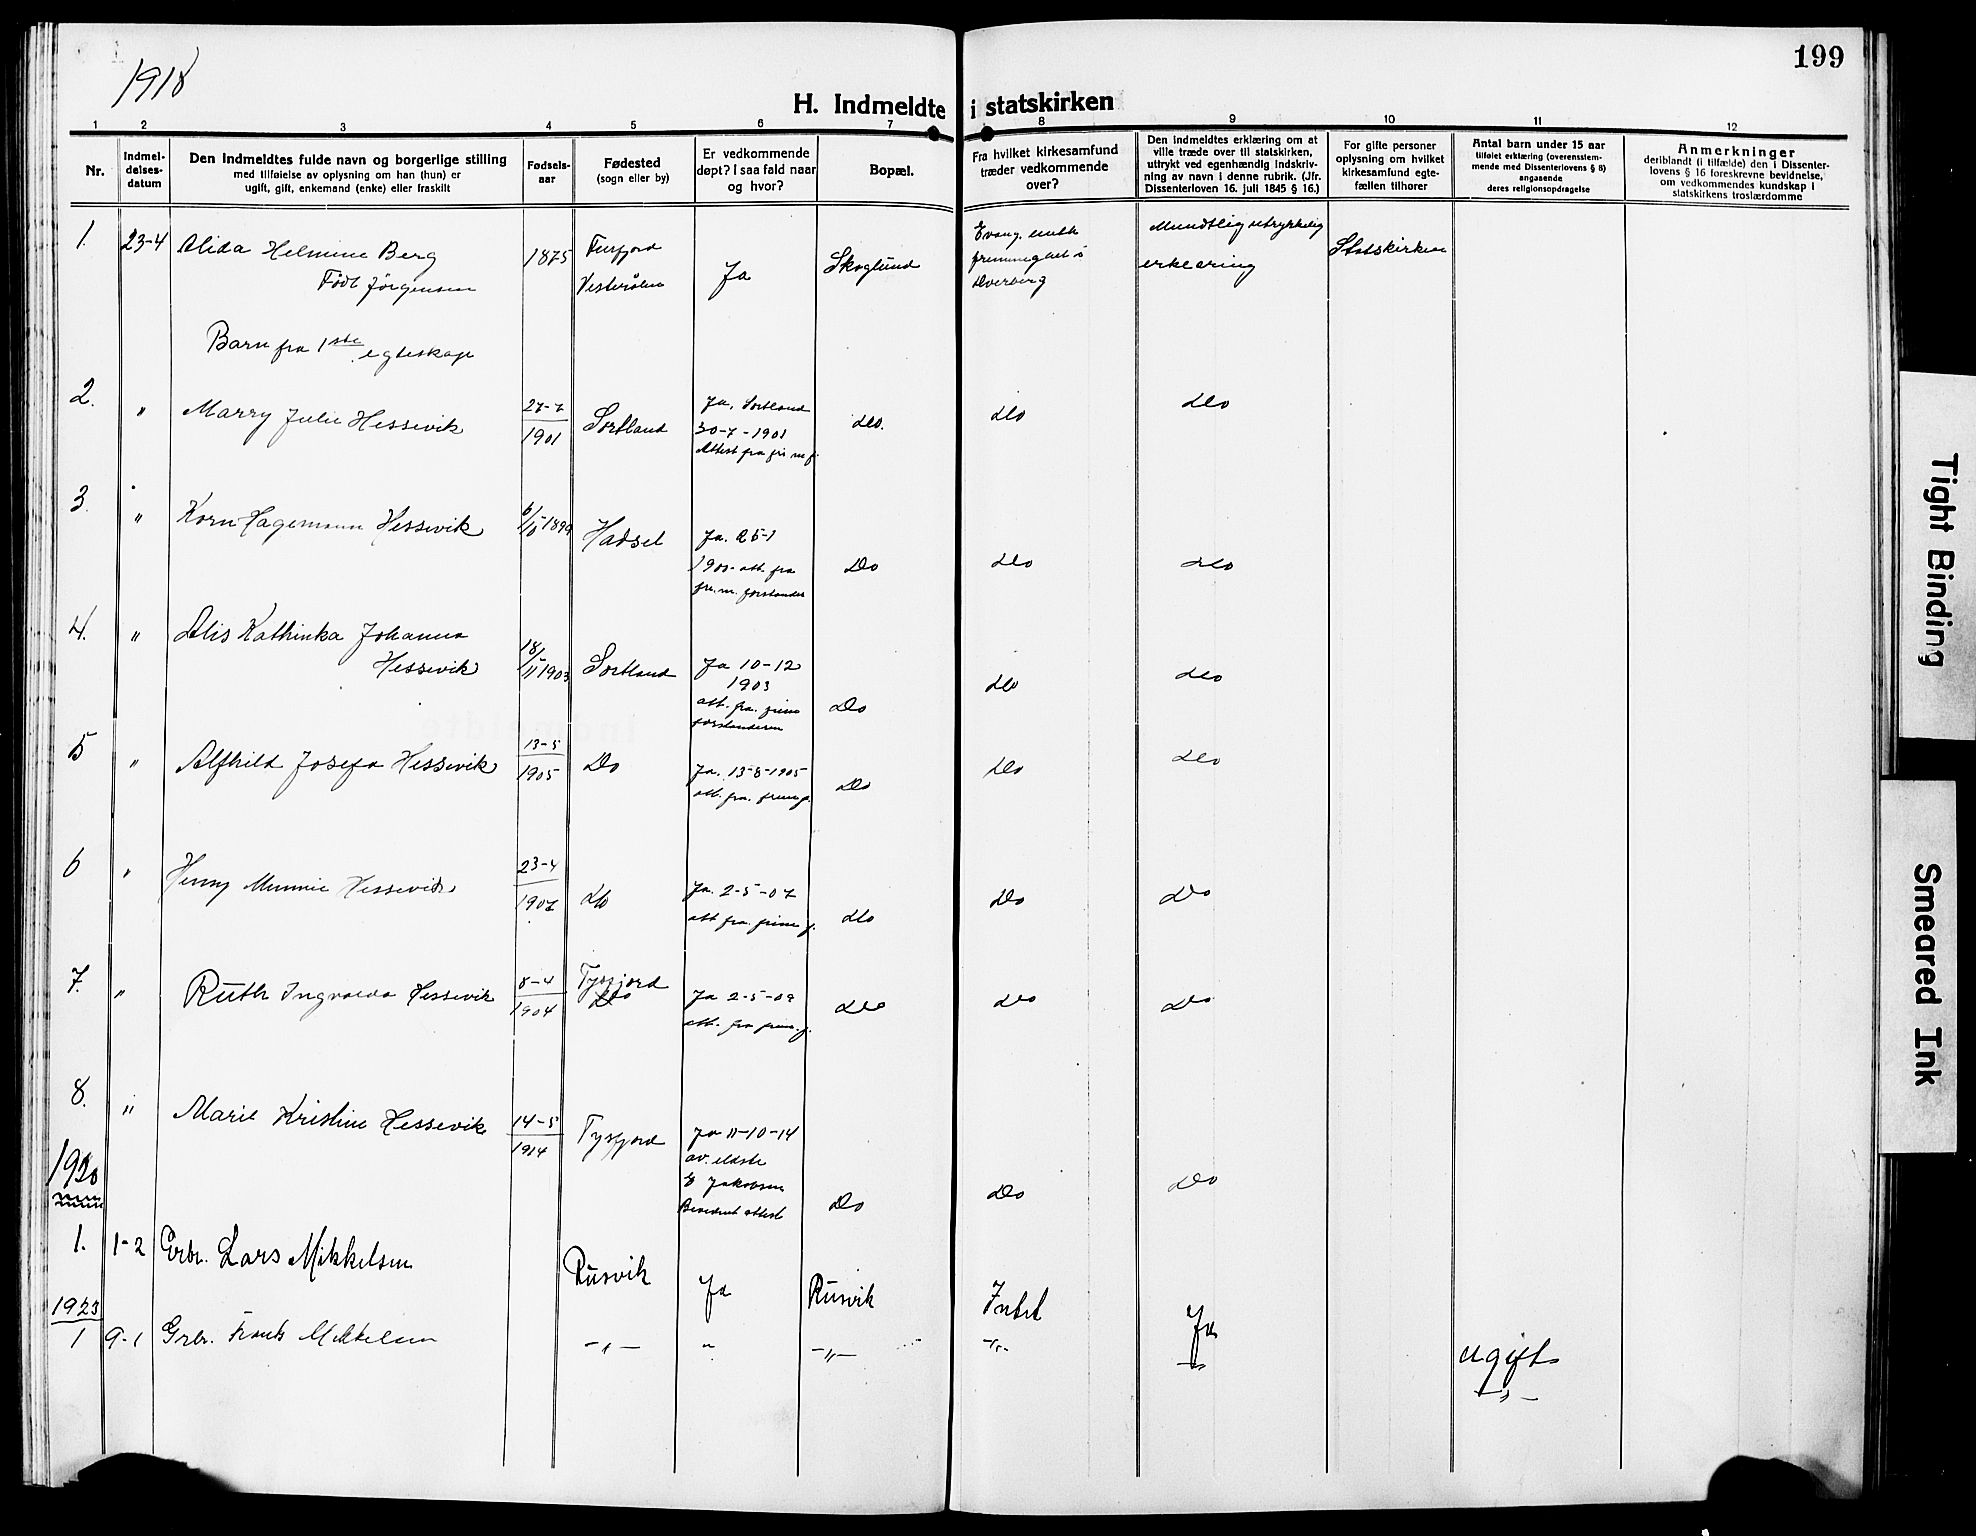 199
1918
H. Indmeldte i statskirken
1 2 3 4 5 6 7 8 9 10 11 12
Nr.
Indmel-
delses-
datum
Den Indmeldtes fulde navn og borgerlige stilling
med tilføielse av oplysning om han (hun) er
ugift, gift, enkemand (enke) eller fraskilt
Fødsels-
aar
Fødested
(sogn eller by)
Er vedkommende
døpt? I saa fald naar
og hvor?
Bopæl.
Fra hvilket kirkesamfund
træder vedkommende
over?
Den indmeldtes erklæring om at
ville træde over til statskirken,
uttrykt ved egenhændig indskriv-
ning av navn i denne rubrik. (Jfr.
Dissenterloven 16. juli 1845 § 16.)
For gifte personer
oplysning om hvilket
kirkesamfund egte-
fællen tilhører
Antal barn under 15 aar
tilføiet erklæring (overensstem-
mende med Dissenterlovens § 8)
angaaende
deres religionsopdragelse
Anmerkninger
deriblandt (i tilfælde) den i Dissenter-
lovens § 16 foreskrevne bevidnelse,
om vedkommendes kundskap i
statskirkens troslærdomme
1. 23-4 Alida Helmine Berg
Født Jørgensen
1875
Vesterålen
Ja
Skoglund
Evang. luth
frimenighet i
Dverberg
Mundtlig uttrykkelig
erklæring
Statskirken
Barn fra 1ste egteskap
2. " Marry Julie Hessevik
27-7
1901
Sortland
Ja, Sortland
30-7-1901
Attest fra fri m f.
do. do do
3. " Korn Hagemann Hessevik
Hadsel
Ja. 25-1
1900 att. fra
fri.m. forstander
Do do do
4. " Alis Kathinka Johanna
Hessevik
18/11 1903
Sortland
Ja 10-12
1903
att. fra. frim
forstanderen
Do do do
5 " Alfhild Josefa Hessevik
13-5
1905
Do
Ja. 13-8-1905
att. fra. frim f.
Do Do do
6 " Henny Minnie Hessevik
23-4
1907
do
Ja. 2-5-07
att fra. frim f.
do Do Do
7. " Ruth Ingvalda Hessevik
8-4
Tysfjord
do
Ja 2-5-09
att. fra frim. f.
do do do
8. " Marie Kristine Hessevik
14-5
1914
Tysfjord
Ja 11-10-14
av. eldste
E Jakobsen
Bevidnet attest
Do Do do
1920
1. 1-2 Grbr. Lars Mikkelsen
Rusvik
Ja
Rusvik
Intet
Ja
ugift
1923
1 9-1 Grbr. Mikkelsen
-"- " -"- -"- -"-
Tight Binding
Smeared Ink